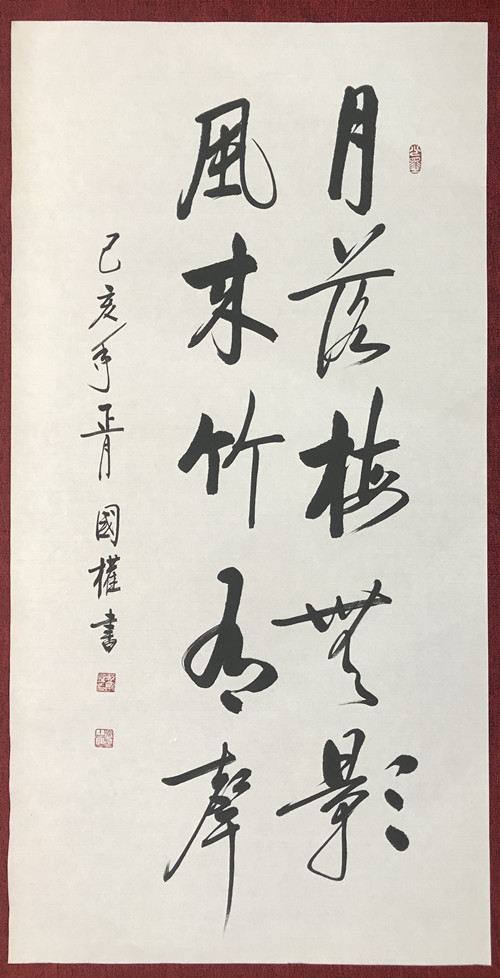 月落梅無影
風來竹有聲
己亥年正月 國權書